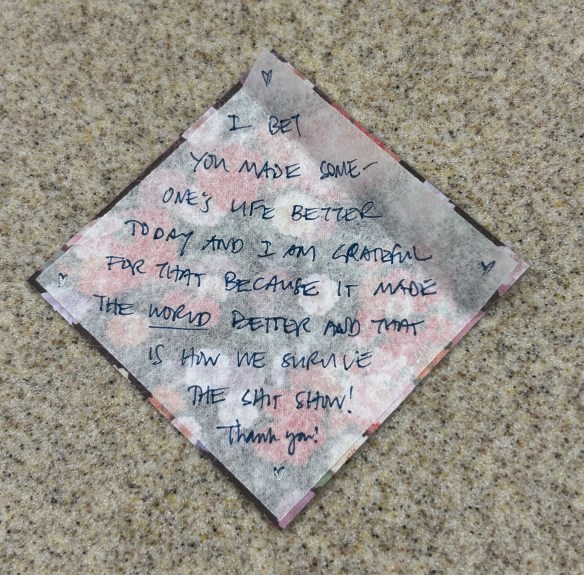 I BET
YOU MADE SOME-
ONE'S LIFE BETTER
TODAY AND I AM GRATEFUL
FOR THAT BECAUSE IT MADE
THE WORLD BETTER AND THAT
IS HOW WE SURVIVE
THE SHIT SHOW!
Thank you!